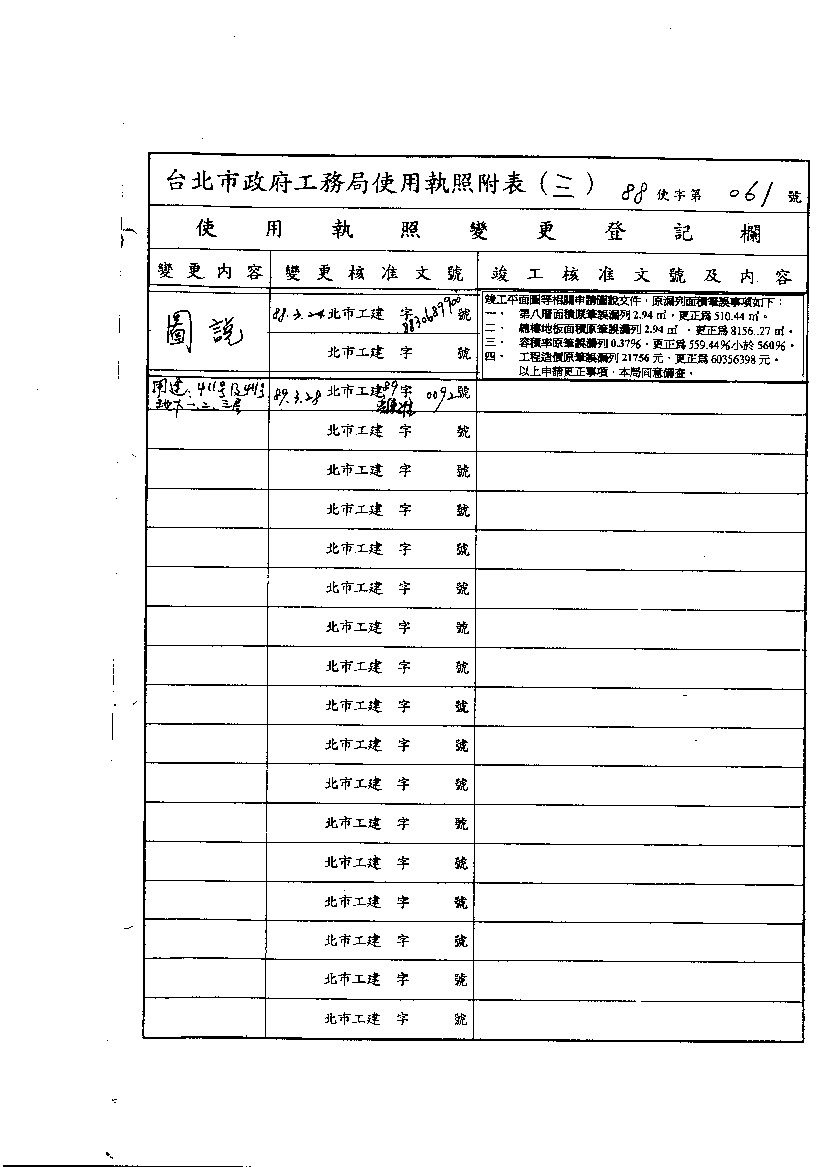 台北市政府工務局使用執照附表(三) 88 使字第 061 號
使用執照變更登記欄
變更內容 變更核准文號 竣工核准文號及內容
圖說 88.3.24 北市工建 字 8830689900 號
北市工建 字 號
竣工平面圖等相關申請圖說文件，原漏列面積筆誤事項如下：
一、第八層面積原筆誤漏列 2.94 ㎡，更正為 510.44 ㎡。
二、總樓地板面積原筆誤漏列 2.94 ㎡，更正為 8156.27 ㎡。
三、容積率原筆誤漏列 0.37%，更正為 559.44%小於 560%。
四、工程造價原筆誤漏列 21756 元，更正為 60356398 元。
以上申請更正事項，本局同意備查。
用途：411号及441号 89.3.28 北市工建 89 字 0092 號
地下一.二.三層
北市工建 字 號
北市工建 字 號
北市工建 字 號
北市工建 字 號
北市工建 字 號
北市工建 字 號
北市工建 字 號
北市工建 字 號
北市工建 字 號
北市工建 字 號
北市工建 字 號
北市工建 字 號
北市工建 字 號
北市工建 字 號
北市工建 字 號
北市工建 字 號